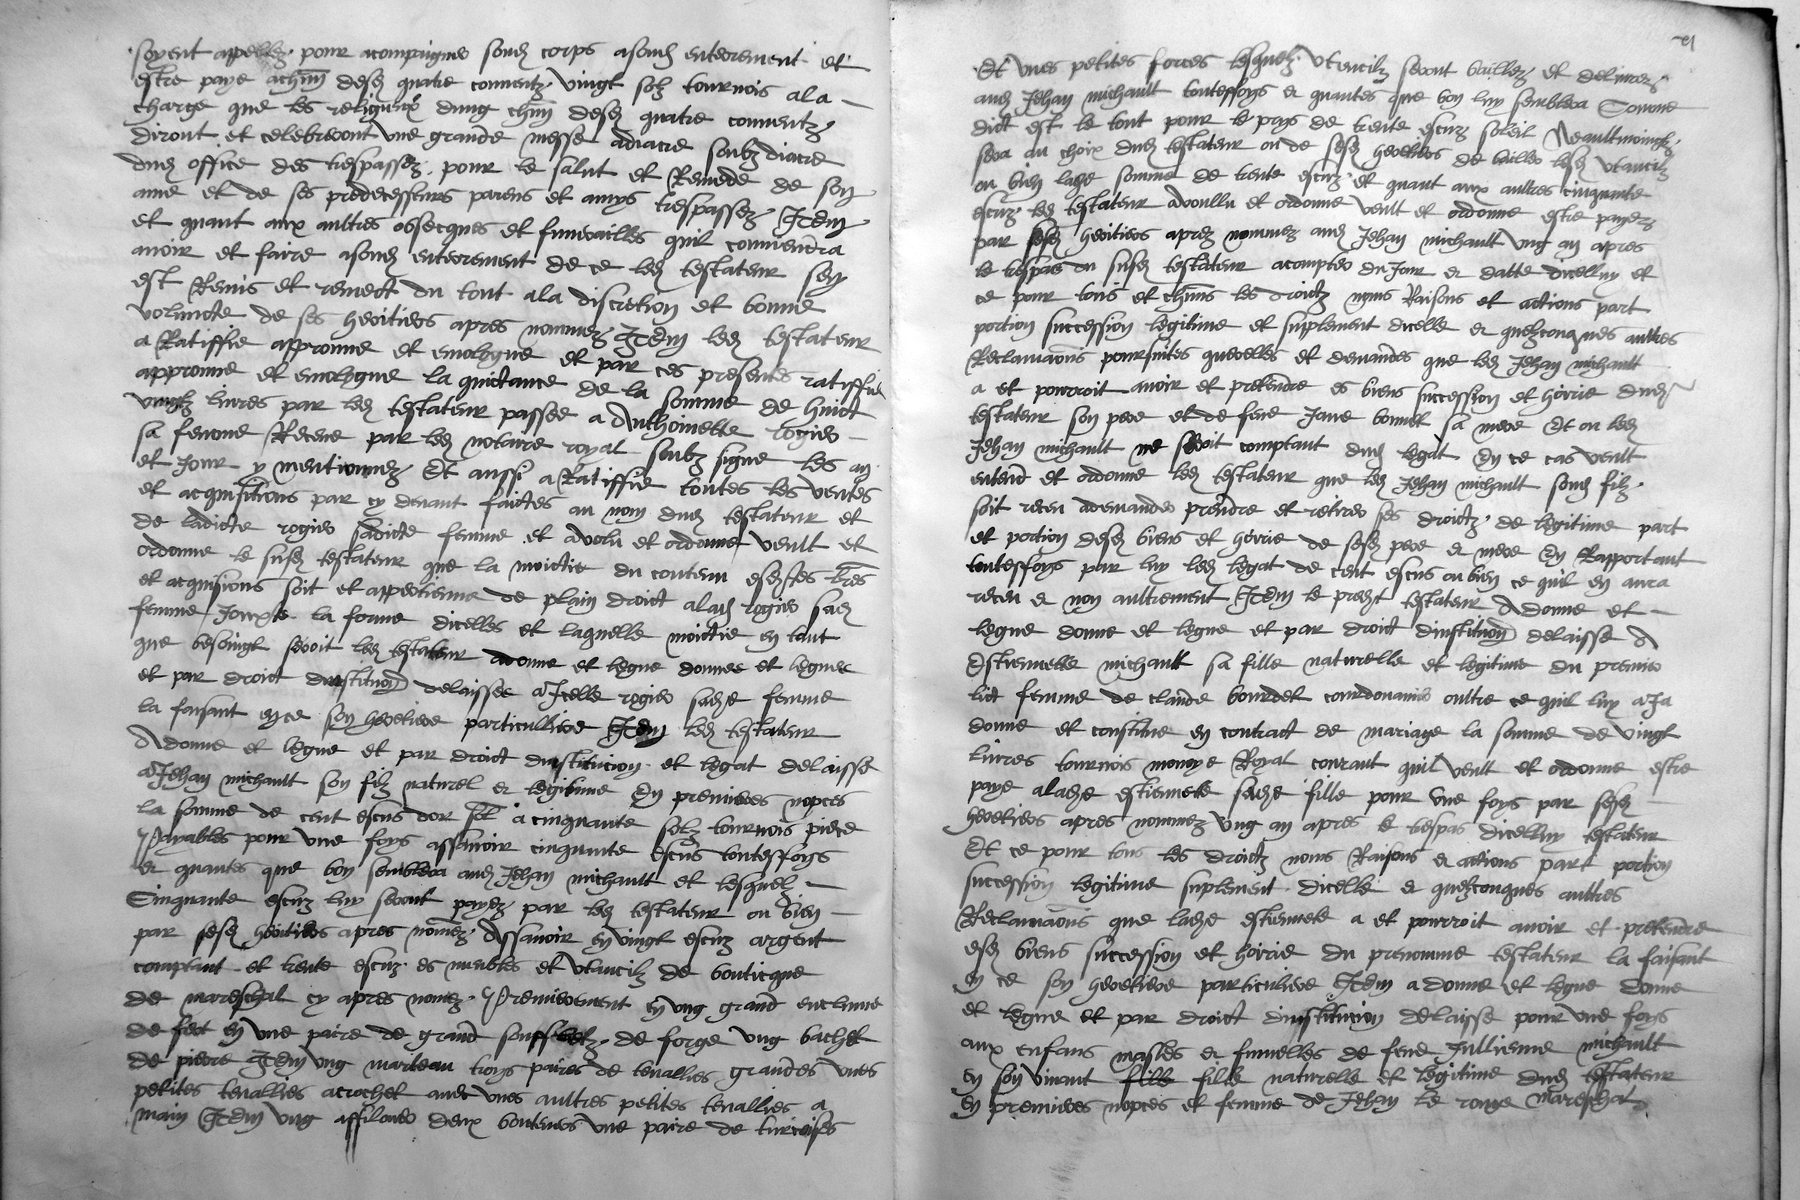 soyent appellez pour acompaigner sond corps asond enterrement et
estre paye achun desd quatre conventz vingt solz tournois ala
charge que les religieux dung chun desd quatre conventz
diront et celebreront une grande messe adiacre soubzdiacre
dud office des trespassez pour le salut et Remede de son
ame et de ses predecesseurs parens et amys trespassez Item
et quant aux aultres obsecques et funerailles quil conviendra
avoir et faire asond enterrement de ce led testateur sen
est Remis et remect du tout ala discretion et bonne
volunte de ses heritiers apres nommez Item led testateur
a Ratiffie approuve et emologue et par ces presentes ratiffie
approuve et emologue la quictance de la somme de huict
vingtz livres par led testateur passee a Anthoinette rogier
sa femme Receue par led notaire royal soubz signe les an
et Jour y mentionnez Et aussi a Ratiffie toutes les ventes
et acquisitions par cy devant faictes au nom dud testateur et
de ladicte rogier sadicte femme et a volu et ordonne veult et
ordonne le susd testateur que la moictie du contenu esdictes lres
et acquisicions soit et appertienne de plain droict alad rogier sad
femme Jouxte la forme dicelles et laquelle moictie en tant
que besoingt seroit led testateur adonne et legue donne et legue
et par droict dinstitution delaisse a Icelle rogier sadte femme
la faisant en ce son heretiere particulliere Item led testateur
A donne et legue et par droict dinstitucion et legat delaisse
a Jehan michault son filz naturel et legitime En premieres nopces
la somme de cent escus dor sol a cinquante solz tournois piece
Payables pour une foys assavoir cinquante escus toutesfoys
et quantes que bon semblera aud Jehan michault et lesquelz
Cinquante escuz luy seront payez par led testateur ou bien
par sesd heritiers apres nomez Assavoir en vingt escuz argent
comptant et trente escuz es meubles et utancilz de bouticque
de mareschal cy apres nomez Premierement en ung grand enclume
de fert en une paire de grand souffletz de forge ung bachet
de pierre Item ung marteau troys paires de tenallies grandes unes
petites tenallies acrochet aud unes aultres petites tenallies a
main Item ung affiloire deux boutoirs une paire de turcoises
Et unes petites forces lesquelz Utencilz seront baillez et delivrez
aud Jehan michault toutesfoys et quantes que bon luy semblera Comme
dict est le tout pour le prys de trente escuz soleil Neaultmoings
sera au choix dud testateur ou de sesd heretiers de bailler lesd Utancilz
ou bien ladte somme de trente escuz et quant aux aultres cinquante
escuz led testateur a voullu et ordonne veult et ordonne estre payez
par sesd heritiers apres nommez aud Jehan michault ung an apres
le trespas du susd testateur acompter du Jour et datte dicelluy et
ce pour tous et chuns les droictz noms Raisons et actions part
portion succession legitime et suplement dicelle et quelzconques aultres
Reclamacions poursuites querelles et demandes que led Jehan michault
a et pourroit avoir et pretendre es biens succession et hoirie dud
testateur son pere et de feue Jane bonnet sa mere Et ou led
Jehan michault ne seroit comptant dud legat En ce cas veult
entend et ordonne led testateur que led Jehan michault sond filz
soit receu ademander prendre et retirer ses droictz de legitime part
et portion desd biens et hoirie de sesd pere et mere En Rapportant
toutesfoys par luy led legat de cent escus ou bien ce quil en aura
receu et non aultrement Item le predt testateur A donne et
legue donne et legue et par droict dinstitution delaisse A
Estiennette michault sa fille naturelle et legitime du premier
lict femme de claude bourdet courdouanier oultre ce quil luy a Ja
donne et constitue en contract de mariage la somme de vingt
livres tournois monoye Royal courant quil veult et ordonne estre
paye aladte estiennete sadte fille pour Une foys par sesd
heretiers apres nommez ung an apres le trespas dicelluy testateur
Et ce pour tous les droictz noms Raisons et actions part portion
succession legitime suplement dicelle et quelzconques aultres
Reclamacions que ladte estiennete a et pourroit avoir et pretendre
esd biens succession et hoirie du prenomme testateur la faisant
en ce son heretiere particuliere Item a donne et legue donne
et legue et par droict dinstitucion delaisse pour une foys
aux enfans masles et fumelles de feue Jullienne michault
en son vivant fille naturelle et legitime dud testateur
en premieres nopces et femme de Jehan le rouge mareschal